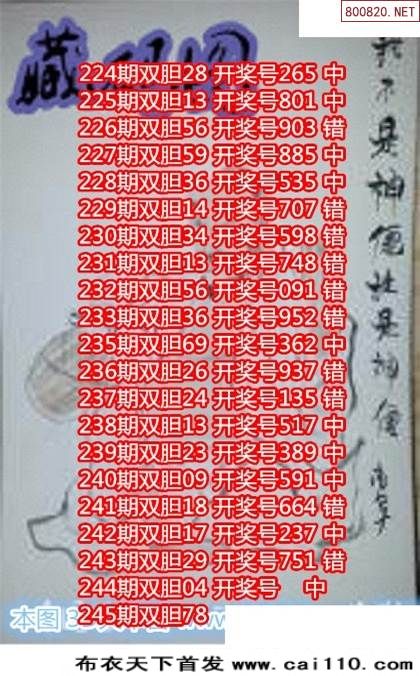 800820.NET
224期双胆28 开奖号265 中
225期双胆13 开奖号801 中
226期双胆56 开奖号903 错
227期双胆59 开奖号885 中
228期双胆36 开奖号535 中
229期双胆14 开奖号707 错
230期双胆34 开奖号598 错
231期双胆13 开奖号748 错
232期双胆56 开奖号091 错
233期双胆36 开奖号952 错
235期双胆69 开奖号362 中
236期双胆26 开奖号937 错
237期双胆24 开奖号135 错
238期双胆13 开奖号517 中
239期双胆23 开奖号389 中
240期双胆09 开奖号591 中
241期双胆18 开奖号664 错
242期双胆17 开奖号237 中
243期双胆29 开奖号751 错
244期双胆04 开奖号 中
245期双胆78
我不是神偬往是神偬
本图 3
布衣天下首发 www.cai110.com